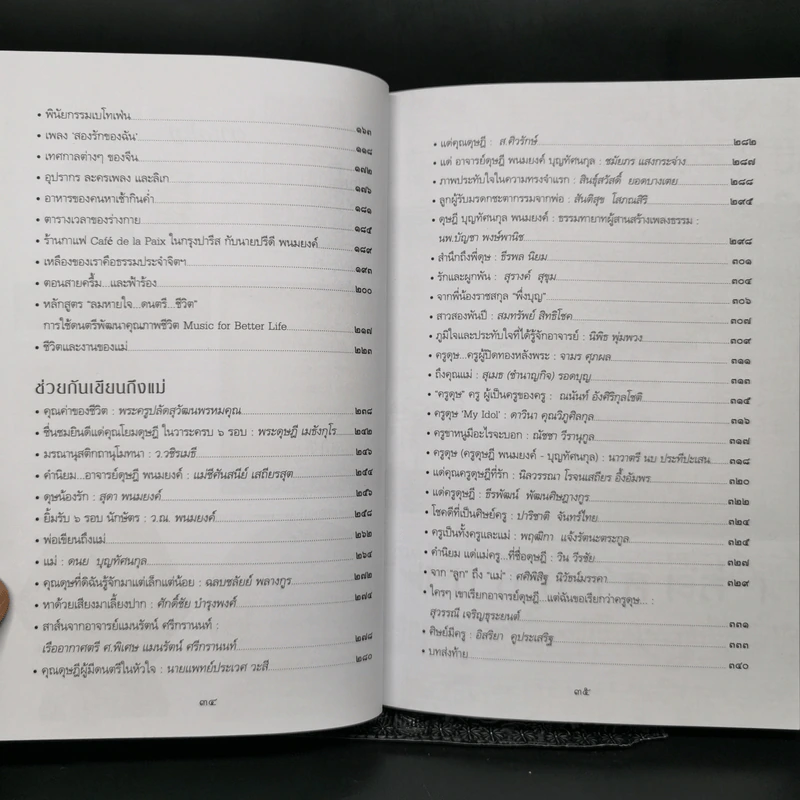 • พินัยกรรมเบโทเฟน ๑๖๓
• เพลง ‘สองรักของฉัน’ ๑๑๘
• เทศกาลต่างๆ ของจีน ๑๗๒
• อุปรากร ละครเพลง และลิเก ๑๗๖
• อาหารของคนหาเช้ากินค่ำ ๑๘๑
• ตารางเวลาของร่างกาย ๑๘๕
• ร้านกาแฟ Café de la Paix ในกรุงปารีส กับนายปรีดี พนมยงค์ ๑๘๙
• เหลืองของเราคือธรรมประจำจิตฯ ๑๙๓
• ตอนสายครึ้ม...และฟ้าร้อง ๒๐๐
• หลักสูตร “ลมหายใจ...ดนตรี...ชีวิต”
การใช้ดนตรีพัฒนาคุณภาพชีวิต Music for Better Life ๒๑๗
• ชีวิตและงานของแม่ ๒๒๓
ช่วยกันเขียนถึงแม่
• คุณค่าของชีวิต : พระครูปลัดสุวัฒนพรหมคุณ ๒๓๘
• ชื่นชมยินดีแด่คุณโยมดุษฎี ในวาระครบ ๖ รอบ : พระดุษฎี เมธังกุโร ๒๔๒
• มรณานุสติกถานุโมทนา : ว.วชิรเมธี ๒๔๖
• คำนิยม...อาจารย์ดุษฎี พนมยงค์ : แม่ชีศันสนีย์ เสถียรสุต ๒๕๔
• ดุษน้องรัก : สุดา พนมยงค์ ๒๕๖
• ยิ้มรับ ๖ รอบ นักษัตร : ว.ณ. พนมยงค์ ๒๕๘
• พ่อเขียนถึงแม่ ๒๖๒
• แม่ : ตนย บุญทัศนกุล ๒๖๔
• คุณดุษที่ดิฉันรู้จักมาแต่เล็กแต่น้อย : ฉลบชลัยย์ พลางกูร ๒๗๒
• หาด้วยเสียงมาเลี้ยงปาก : ศักดิ์ชัย บำรุงพงศ์ ๒๗๔
• สาส์นจากอาจารย์แมนรัตน์ ศรีกรานนท์ :
เรืออากาศตรี ศ.พิเศษ แมนรัตน์ ศรีกรานนท์ ๒๗๘
• คุณดุษฎีผู้มีดนตรีในหัวใจ : นายแพทย์ประเวศ วะสี ๒๘๐
๓๔
• แด่คุณดุษฎี : ส.ศิวรักษ์ ๒๘๒
• แด่ อาจารย์ดุษฎี พนมยงค์ บุญทัศนกุล : ชมัยภร แสงกระจ่าง ๒๘๗
• ภาพประทับใจในความทรงจำแรก : สินธุ์สวัสดิ์ ยอดบางเตย ๒๘๘
• ลูกผู้รับมรดกชะตากรรมจากพ่อ : สันติสุข โสภณสิริ ๒๙๕
• ดุษฎี บุญทัศนกุล พนมยงค์ : ธรรมทายาทผู้สานสร้างเพลงธรรม :
นพ.บัญชา พงษ์พานิช ๒๙๘
• สำนึกถึงพี่ดุษ : ธีรพล นิยม ๓๐๑
• รักและผูกพัน : สุรางค์ สุขุม ๓๐๔
• จากพี่น้องราชสกุล “พึ่งบุญ” ๓๐๖
• สาวสองพันปี : สมทรัพย์ สิทธิโชค ๓๐๗
• ภูมิใจและประทับใจที่ได้รู้จักอาจารย์ : นิพิธ พุ่มพวง ๓๐๙
• ครูดุษ...ครูผู้ปิดทองหลังพระ : จามร ศุภผล ๓๑๑
• ถึงคุณแม่ : สุเมธ (ชำนาญกิจ) รอดบุญ ๓๑๓
• “ครูดุษ” ครู ผู้เป็นครูของครู : ณนันท์ อังศิริกุลโชติ ๓๑๔
• ครูดุษ ‘My Idol’ : ดาวินา คุณวิภูศิลกุล ๓๑๖
• ครูขาหนูมีอะไรจะบอก : ณัชชา วีรานุกูล ๓๑๗
• ครูดุษ (ครูดุษฎี พนมยงค์ - บุญทัศนกุล) : นาวาตรี นบ ประทีปะเสน ๓๑๘
• แด่คุณครูดุษฎีที่รัก : นิลวรรณา โรจนเสถียร อึ้งอัมพร ๓๒๐
• แด่ครูดุษฎี : ธีรพัฒน์ พัฒนศิษฎางกูร ๓๒๒
• โชคดีที่เป็นศิษย์ครู : ปาริชาติ จันทร์ไทย ๓๒๔
• ครูเป็นทั้งครูและแม่ : พฤฒิกา แจ้งรัตนะตระกูล ๓๒๕
• คำนิยม แด่แม่ครู...ที่ชื่อดุษฎี : วิน วีรชัย ๓๒๗
• จาก “ลูก” ถึง “แม่” : ศศิพิสิฐ นิวัธน์มรรคา ๓๒๙
• ใครๆ เขาเรียกอาจารย์ดุษฎี...แต่ฉันขอเรียกว่าครูดุษ... :
สุวรรณี เจริญธุระยนต์ ๓๓๑
• ศิษย์มีครู : อิสริยา คูประเสริฐ ๓๓๓
• บทส่งท้าย ๓๔๐
๓๕